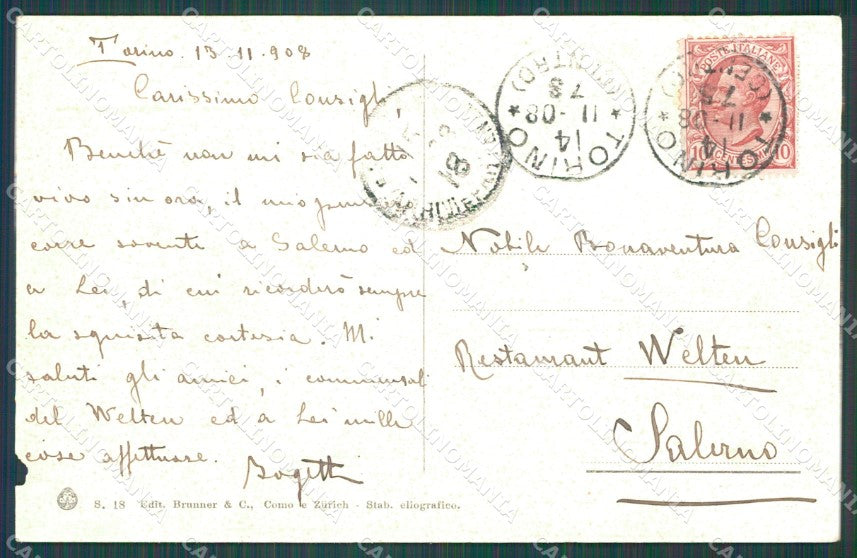 Torino 13-11-908
Carissimo Consigli
Benché non mi sia fatto
vivo sin ora, il mio pensiero
corre sovente a Salerno ed
a Lei, di cui ricorderò sempre
la squisita cortesia. Mi
saluti gli amici, i commensali
del Welten ed a Lei mille
cose affettuose.
Bogetti
POSTE ITALIANE
10 CENTESIMI 10
TORINO
(CENTRO)
14
11-08
7S
TORINO
(CENTRO)
14
11-08
7S
18
Nobile Bonaventura Consigli
Restaurant Welten
Salerno
S. 18 Edit. Brunner & C., Como e Zürich - Stab. eliografico.
CARTOLINOMANIA